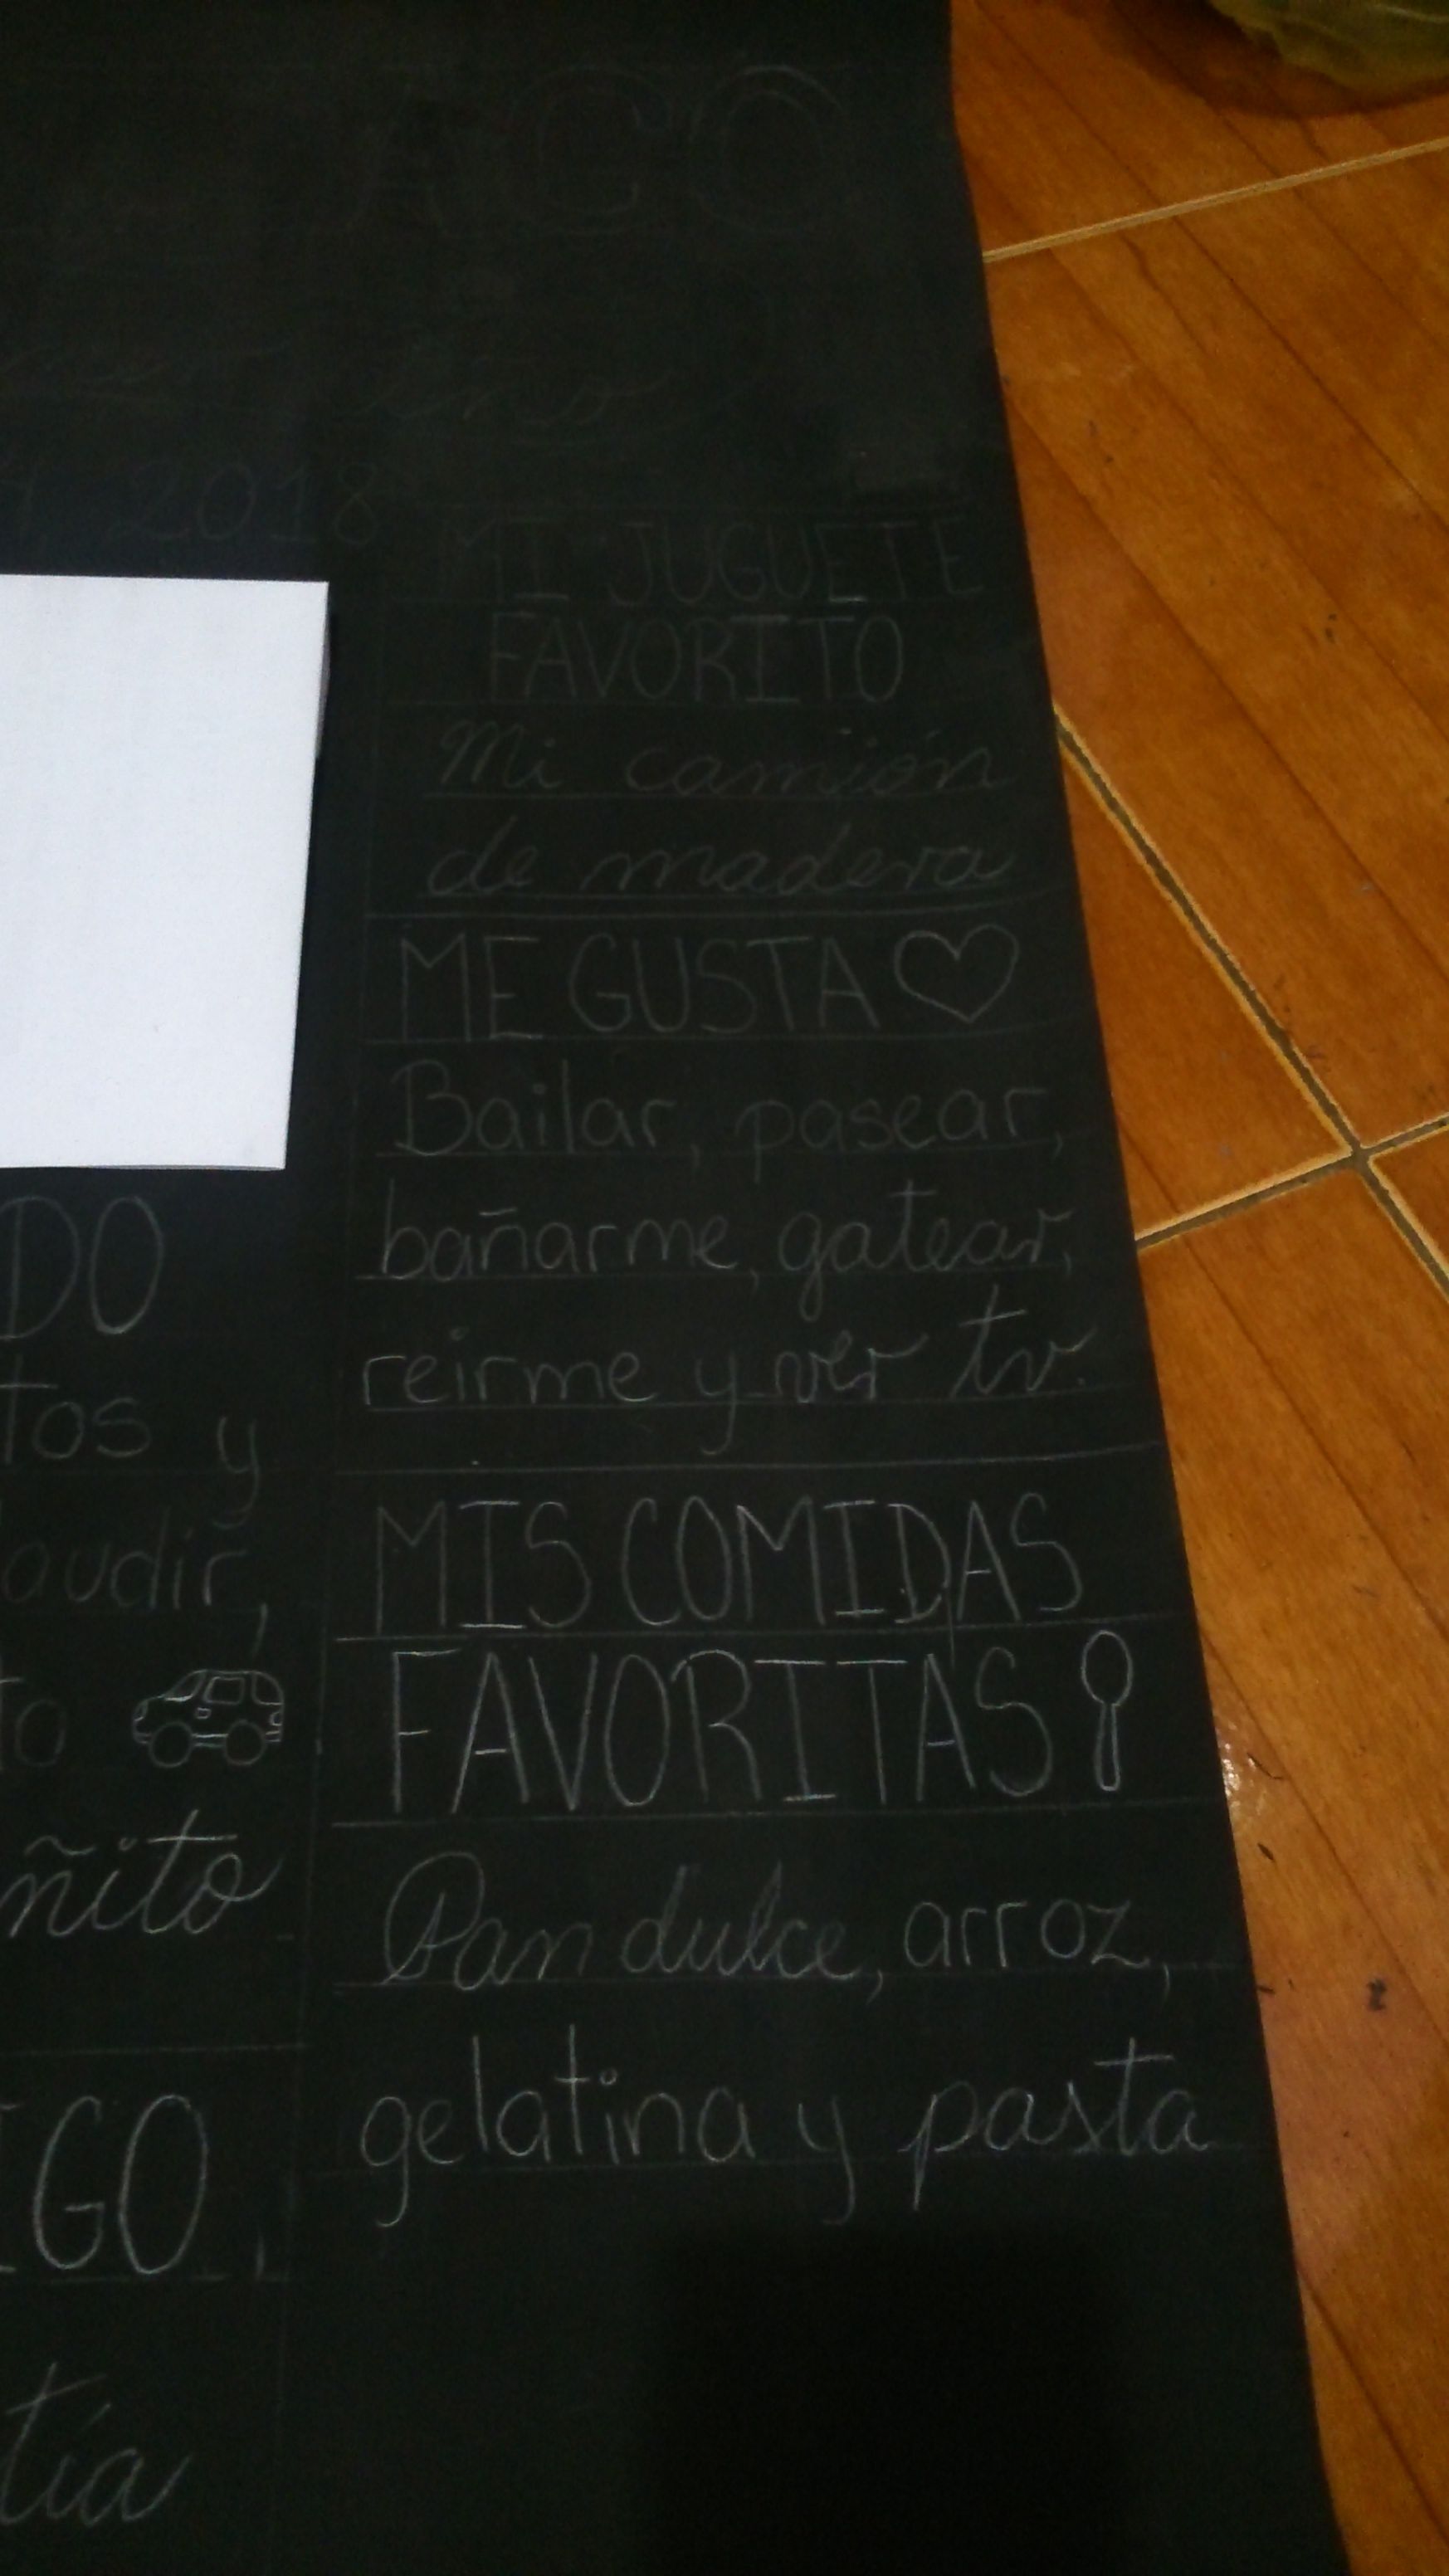 2018
MI JUGUETE
FAVORITO
Mi camión
de madera
ME GUSTA
Bailar, pasear,
bañarme, gatear,
reirme y ver tv.
MIS COMIDAS
FAVORITAS
Pan dulce, arroz,
gelatina y pasta
DO
tos y
audir,
to
ñito
IGO
tía